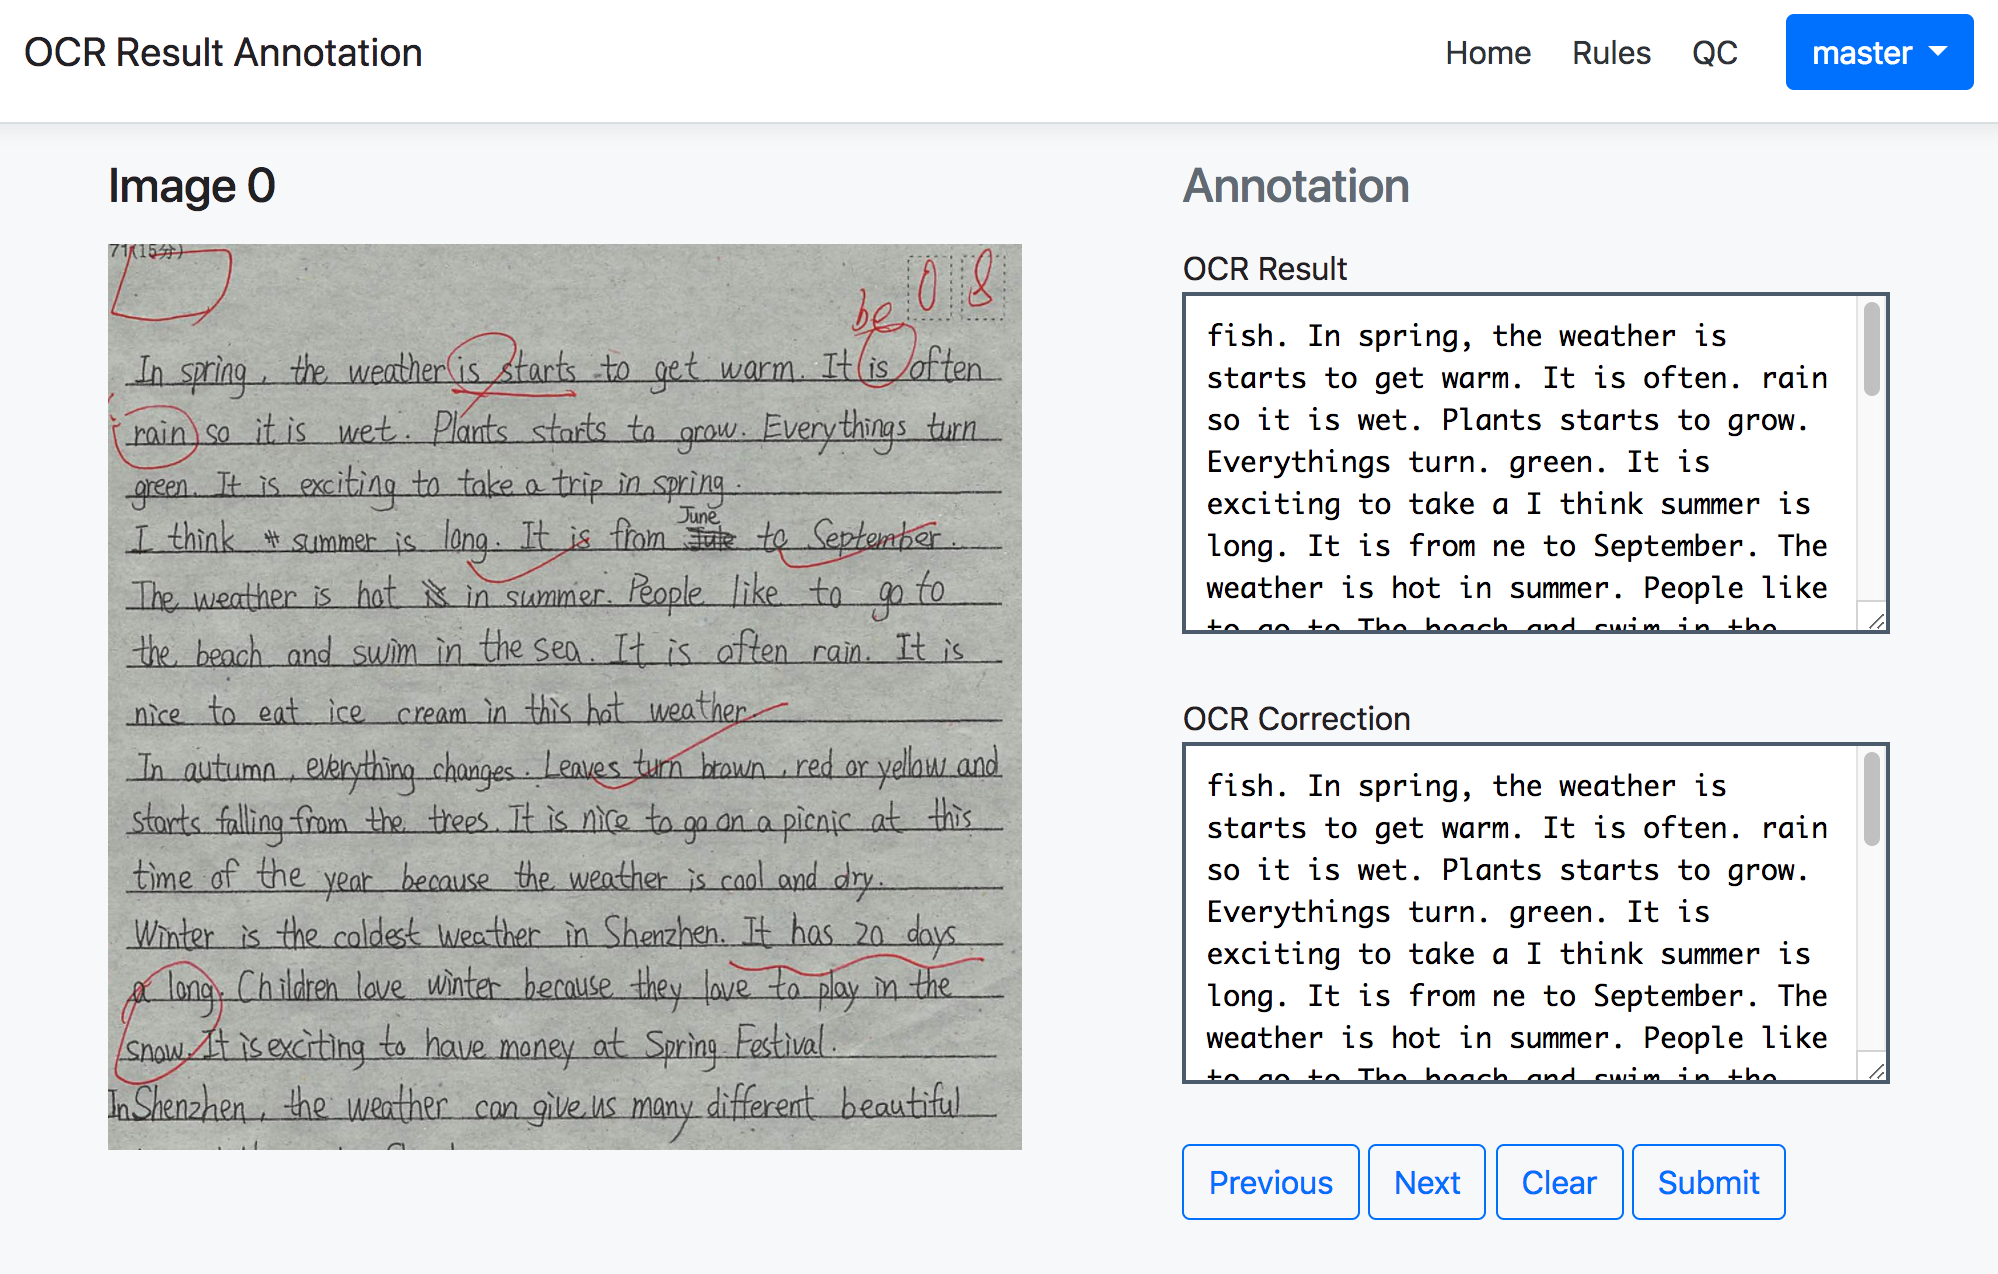 OCR Result Annotation
Home
Rules
QC
master
Image 0
71(15分)
08
be
In spring, the weather is starts to get warm. It is often
rain so it is wet. Plants starts to grow. Everythings turn
green. It is exciting to take a trip in spring.
June
I think summer is long. It is from to September.
The weather is hot in summer. People like to go to
the beach and swim in the sea. It is often rain. It is
nice to eat ice cream in this hot weather.
In autumn, everything changes. Leaves turn brown, red or yellow and
starts falling from the trees. It is nice to go on a picnic at this
time of the year because the weather is cool and dry.
Winter is the coldest weather in Shenzhen. It has 20 days
a long. Children love winter because they love to play in the
snow. It is exciting to have money at Spring Festival.
In Shenzhen, the weather can give us many different beautiful
Annotation
OCR Result
fish. In spring, the weather is
starts to get warm. It is often. rain
so it is wet. Plants starts to grow.
Everythings turn. green. It is
exciting to take a I think summer is
long. It is from ne to September. The
weather is hot in summer. People like
to go to The beach and swim in the
OCR Correction
fish. In spring, the weather is
starts to get warm. It is often. rain
so it is wet. Plants starts to grow.
Everythings turn. green. It is
exciting to take a I think summer is
long. It is from ne to September. The
weather is hot in summer. People like
to go to The beach and swim in the
Previous
Next
Clear
Submit